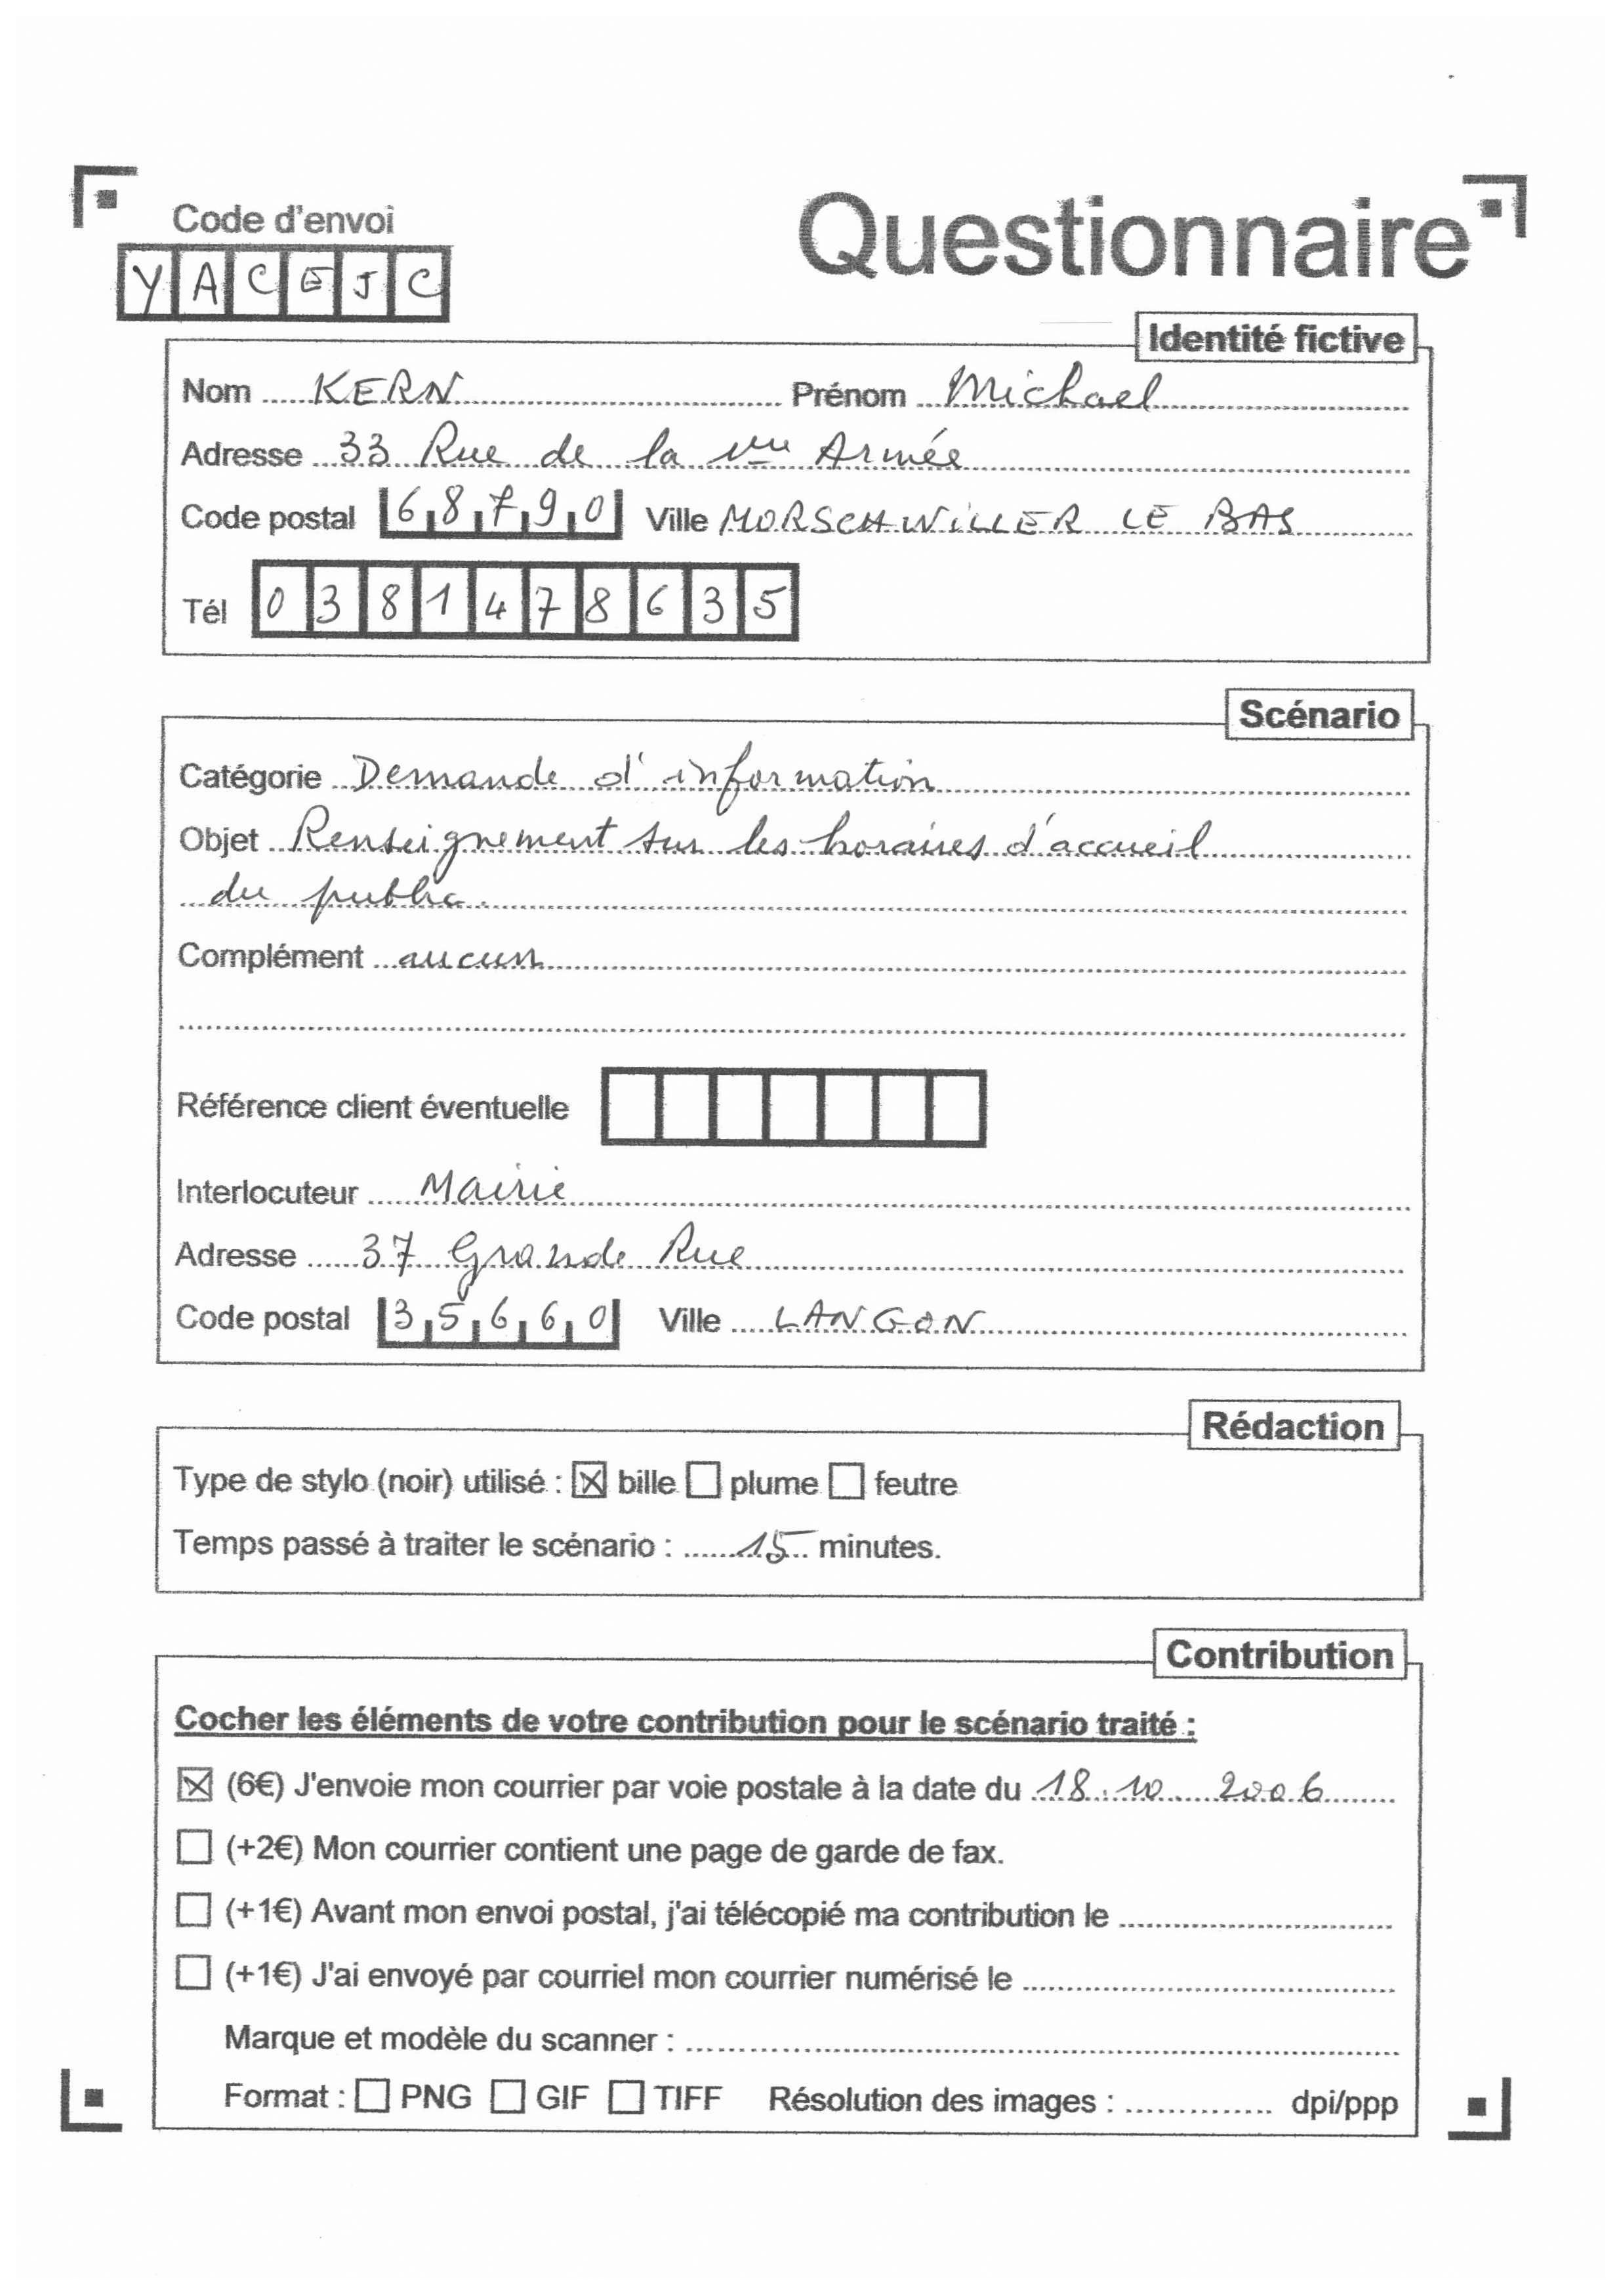 Code d'envoi
Questionnaire
YACEJC
Identité fictive
Nom KERN Prénom Michael
Adresse 33 Rue de la 1ère Armée
Code postal 68790 Ville MORSCHWILLER LE BAS
Tél 0381478635
Scénario
Catégorie Demande d'information
Objet Renseignement sur les horaires d'accueil
du public.
Complément aucun
Référence client éventuelle
Interlocuteur Mairie
Adresse 37 Grande Rue
Code postal 35660 Ville LANGON
Rédaction
Type de stylo (noir) utilisé : ☒ bille ☐ plume ☐ feutre
Temps passé à traiter le scénario : 15 minutes.
Contribution
Cocher les éléments de votre contribution pour le scénario traité :
☒ (6€) J'envoie mon courrier par voie postale à la date du 18.10 2006
☐ (+2€) Mon courrier contient une page de garde de fax.
☐ (+1€) Avant mon envoi postal, j'ai télécopié ma contribution le
☐ (+1€) J'ai envoyé par courriel mon courrier numérisé le
Marque et modèle du scanner :
Format : ☐ PNG ☐ GIF ☐ TIFF Résolution des images : dpi/ppp